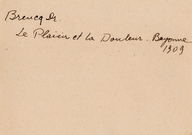 Breucq Dr.
Le Plaisir et la Douleur. Bayonne
1909